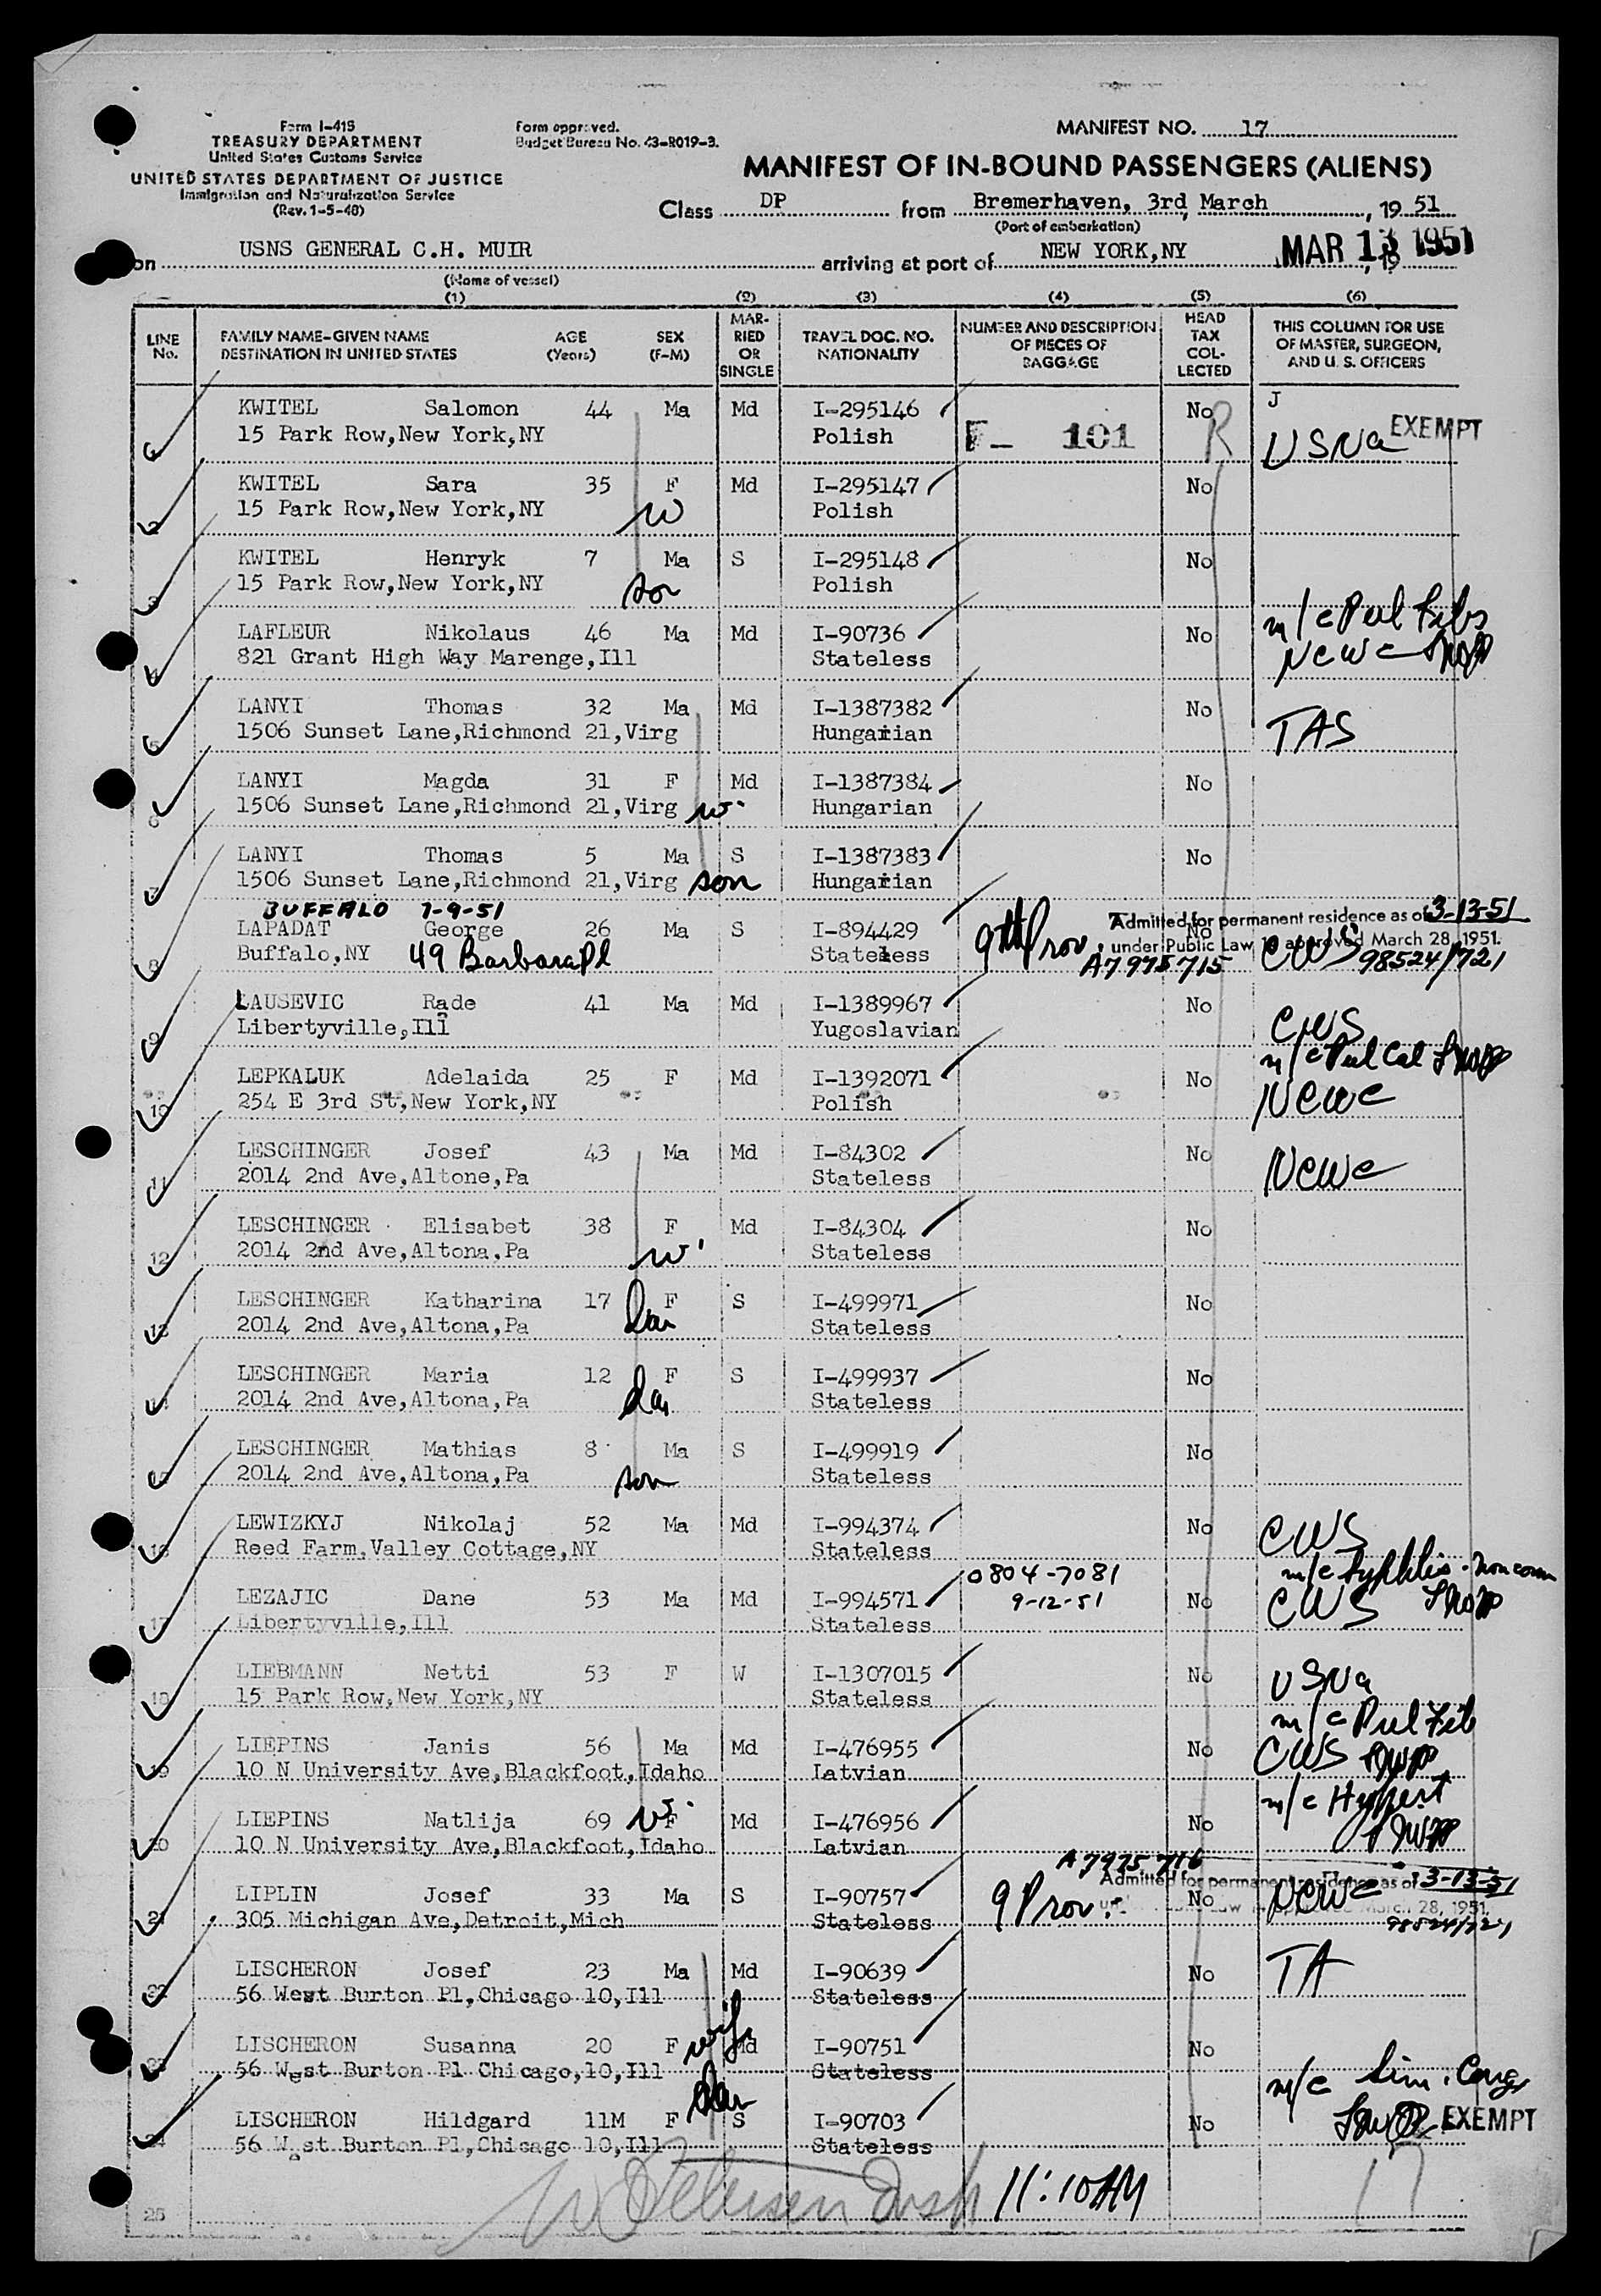 Form I-418
TREASURY DEPARTMENT
United States Customs Service
UNITED STATES DEPARTMENT OF JUSTICE
Immigration and Naturalization Service
(Rev. 1-5-48)
Form approved.
Budget Bureau No. 43-R019-3.
MANIFEST NO. 17
MANIFEST OF IN-BOUND PASSENGERS (ALIENS)
Class DP from Bremerhaven, 3rd, March, 19 51
(Port of embarkation)
on USNS GENERAL C.H. MUIR arriving at port of NEW YORK,NY MAR 13 1951, 19
(Name of vessel)
(1) (2) (3) (4) (5) (6)
LINE No. FAMILY NAME-GIVEN NAME DESTINATION IN UNITED STATES AGE (Years) SEX (F-M) MARRIED OR SINGLE TRAVEL DOC. NO. NATIONALITY NUMBER AND DESCRIPTION OF PIECES OF BAGGAGE HEAD TAX COLLECTED THIS COLUMN FOR USE OF MASTER, SURGEON, AND U. S. OFFICERS
KWITEL Salomon 44 Ma Md I-295146 No J
15 Park Row,New York,NY Polish F- 101 R USNa EXEMPT
2 KWITEL Sara 35 F Md I-295147 No
15 Park Row,New York,NY W Polish
3 KWITEL Henryk 7 Ma S I-295148 No
15 Park Row,New York,NY son Polish
m/c Pul Fibs
4 LAFLEUR Nikolaus 46 Ma Md I-90736 No NCWC
821 Grant High Way Marenge,Ill Stateless
5 LANYI Thomas 32 Ma Md I-1387382 No
1506 Sunset Lane,Richmond 21,Virg Hungarian TAS
6 LANYI Magda 31 F Md I-1387384 No
1506 Sunset Lane,Richmond 21,Virg w. Hungarian
7 LANYI Thomas 5 Ma S I-1387383 No
1506 Sunset Lane,Richmond 21,Virg son Hungarian
BUFFALO 7-9-51
8 LAPADAT George 26 Ma S I-894429 9th Prov. No Admitted for permanent residence as of 3-13-51
Buffalo,NY 49 Barbara Pl Stateless under Public Law approved March 28, 1951.
A7975715 CWS 98524/721
9 LAUSEVIC Rade 41 Ma Md I-1389967 No
Libertyville,Ill Yugoslavian CWS
m/c Pul Cal
10 LEPKALUK Adelaida 25 F Md I-1392071 No
254 E 3rd St,New York,NY Polish NCWC
11 LESCHINGER Josef 43 Ma Md I-84302 No
2014 2nd Ave,Altone,Pa Stateless NCWC
12 LESCHINGER Elisabet 38 F Md I-84304 No
2014 2nd Ave,Altona.Pa w Stateless
13 LESCHINGER Katharina 17 F S I-499971 No
2014 2nd Ave,Altona,Pa Dau Stateless
14 LESCHINGER Maria 12 F S I-499937 No
2014 2nd Ave,Altona,Pa Da Stateless
15 LESCHINGER Mathias 8 Ma S I-499919 No
2014 2nd Ave,Altona,Pa son Stateless
16 LEWIZKYJ Nikolaj 52 Ma Md I-994374 No CWS
Reed Farm,Valley Cottage,NY Stateless
0804-7081 m/c Syphilis. Non comm
17 LEZAJIC Dane 53 Ma Md I-994571 9-12-51 No CWS
Libertyville,Ill Stateless
18 LIEBMANN Netti 53 F W I-1307015 No USNa
15 Park Row,New York,NY Stateless
m/c Pul Fib
19 LIEPINS Janis 56 Ma Md I-476955 No CWS
10 N University Ave,Blackfoot,Idaho Latvian
m/c Hypert
20 LIEPINS Natlija 69 w. F Md I-476956 No
10 N University Ave,Blackfoot,Idaho Latvian
A7975716
21 LIPLIN Josef 33 Ma S I-90757 9 Prov. No NCWC Admitted for permanent residence as of 3-13-51
305 Michigan Ave,Detroit,Mich Stateless Law March 28, 1951.
98524/721
22 LISCHERON Josef 23 Ma Md I-90639 No TA
56 West Burton Pl,Chicago 10,Ill Stateless
23 LISCHERON Susanna 20 F wife Md I-90751 No
56 West Burton Pl Chicago,10,Ill Stateless
m/c
24 LISCHERON Hildgard 11M F Dau S I-90703 No EXEMPT
56 W st Burton Pl,Chicago 10,Ill Stateless
25 11:10 AM 17